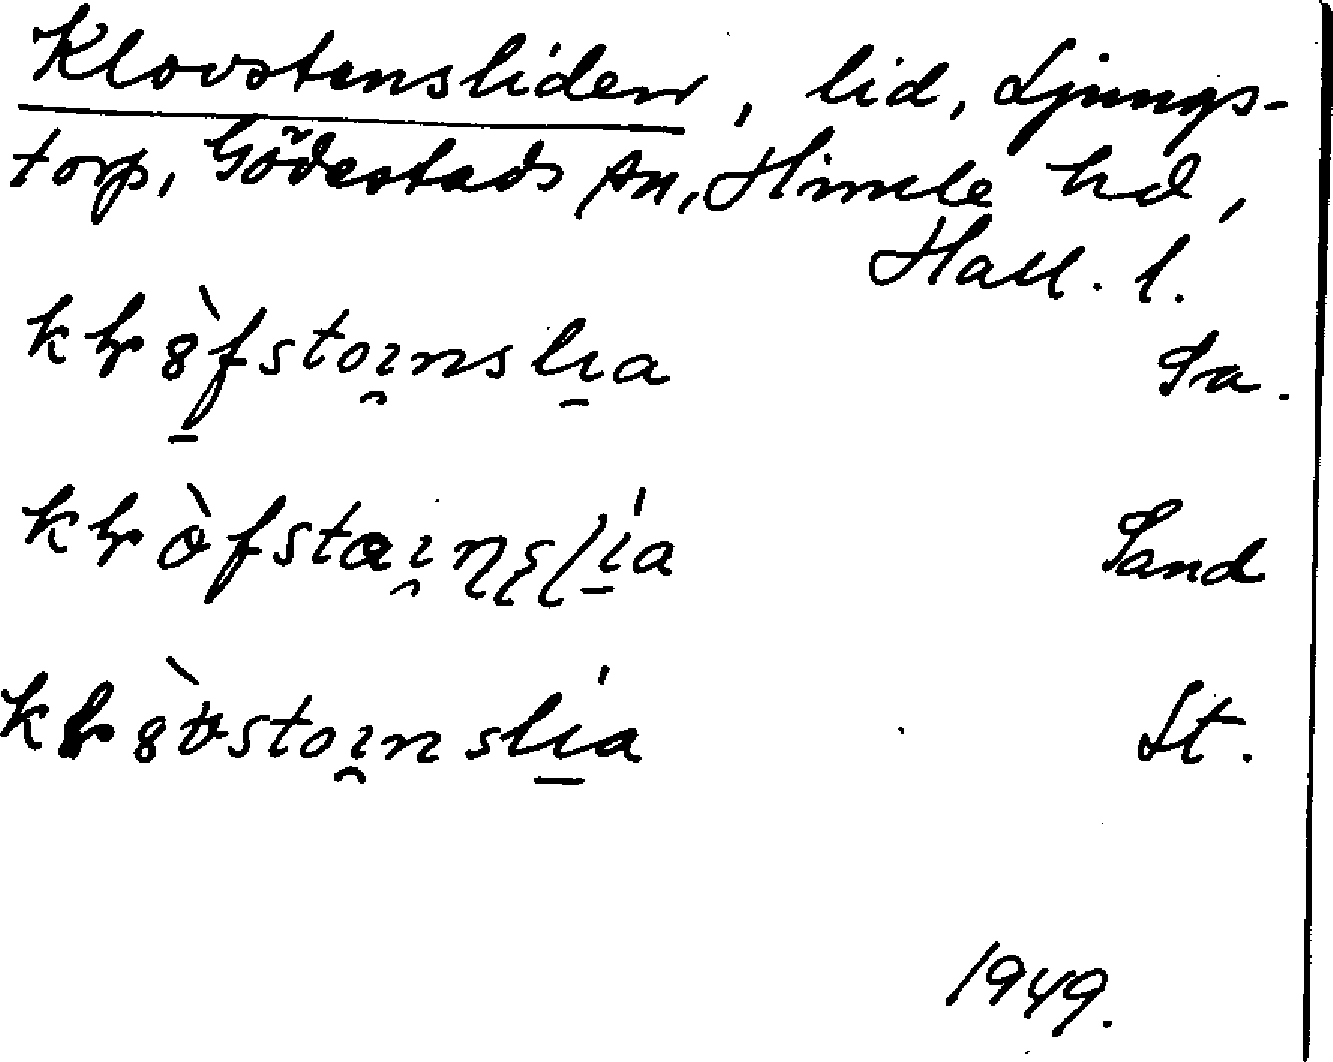 Klovstensliden, lid, Ljungs-
torp, Gödestads sn, Himle hd,
Hall. l.
kɽȣ̀fstoı̯nslı̱a Sa.
kɽòfstaı̯ɳʂɭı̱́a Sand
kɽȣ̀vstoı̯nslı̱́a St.
1949.